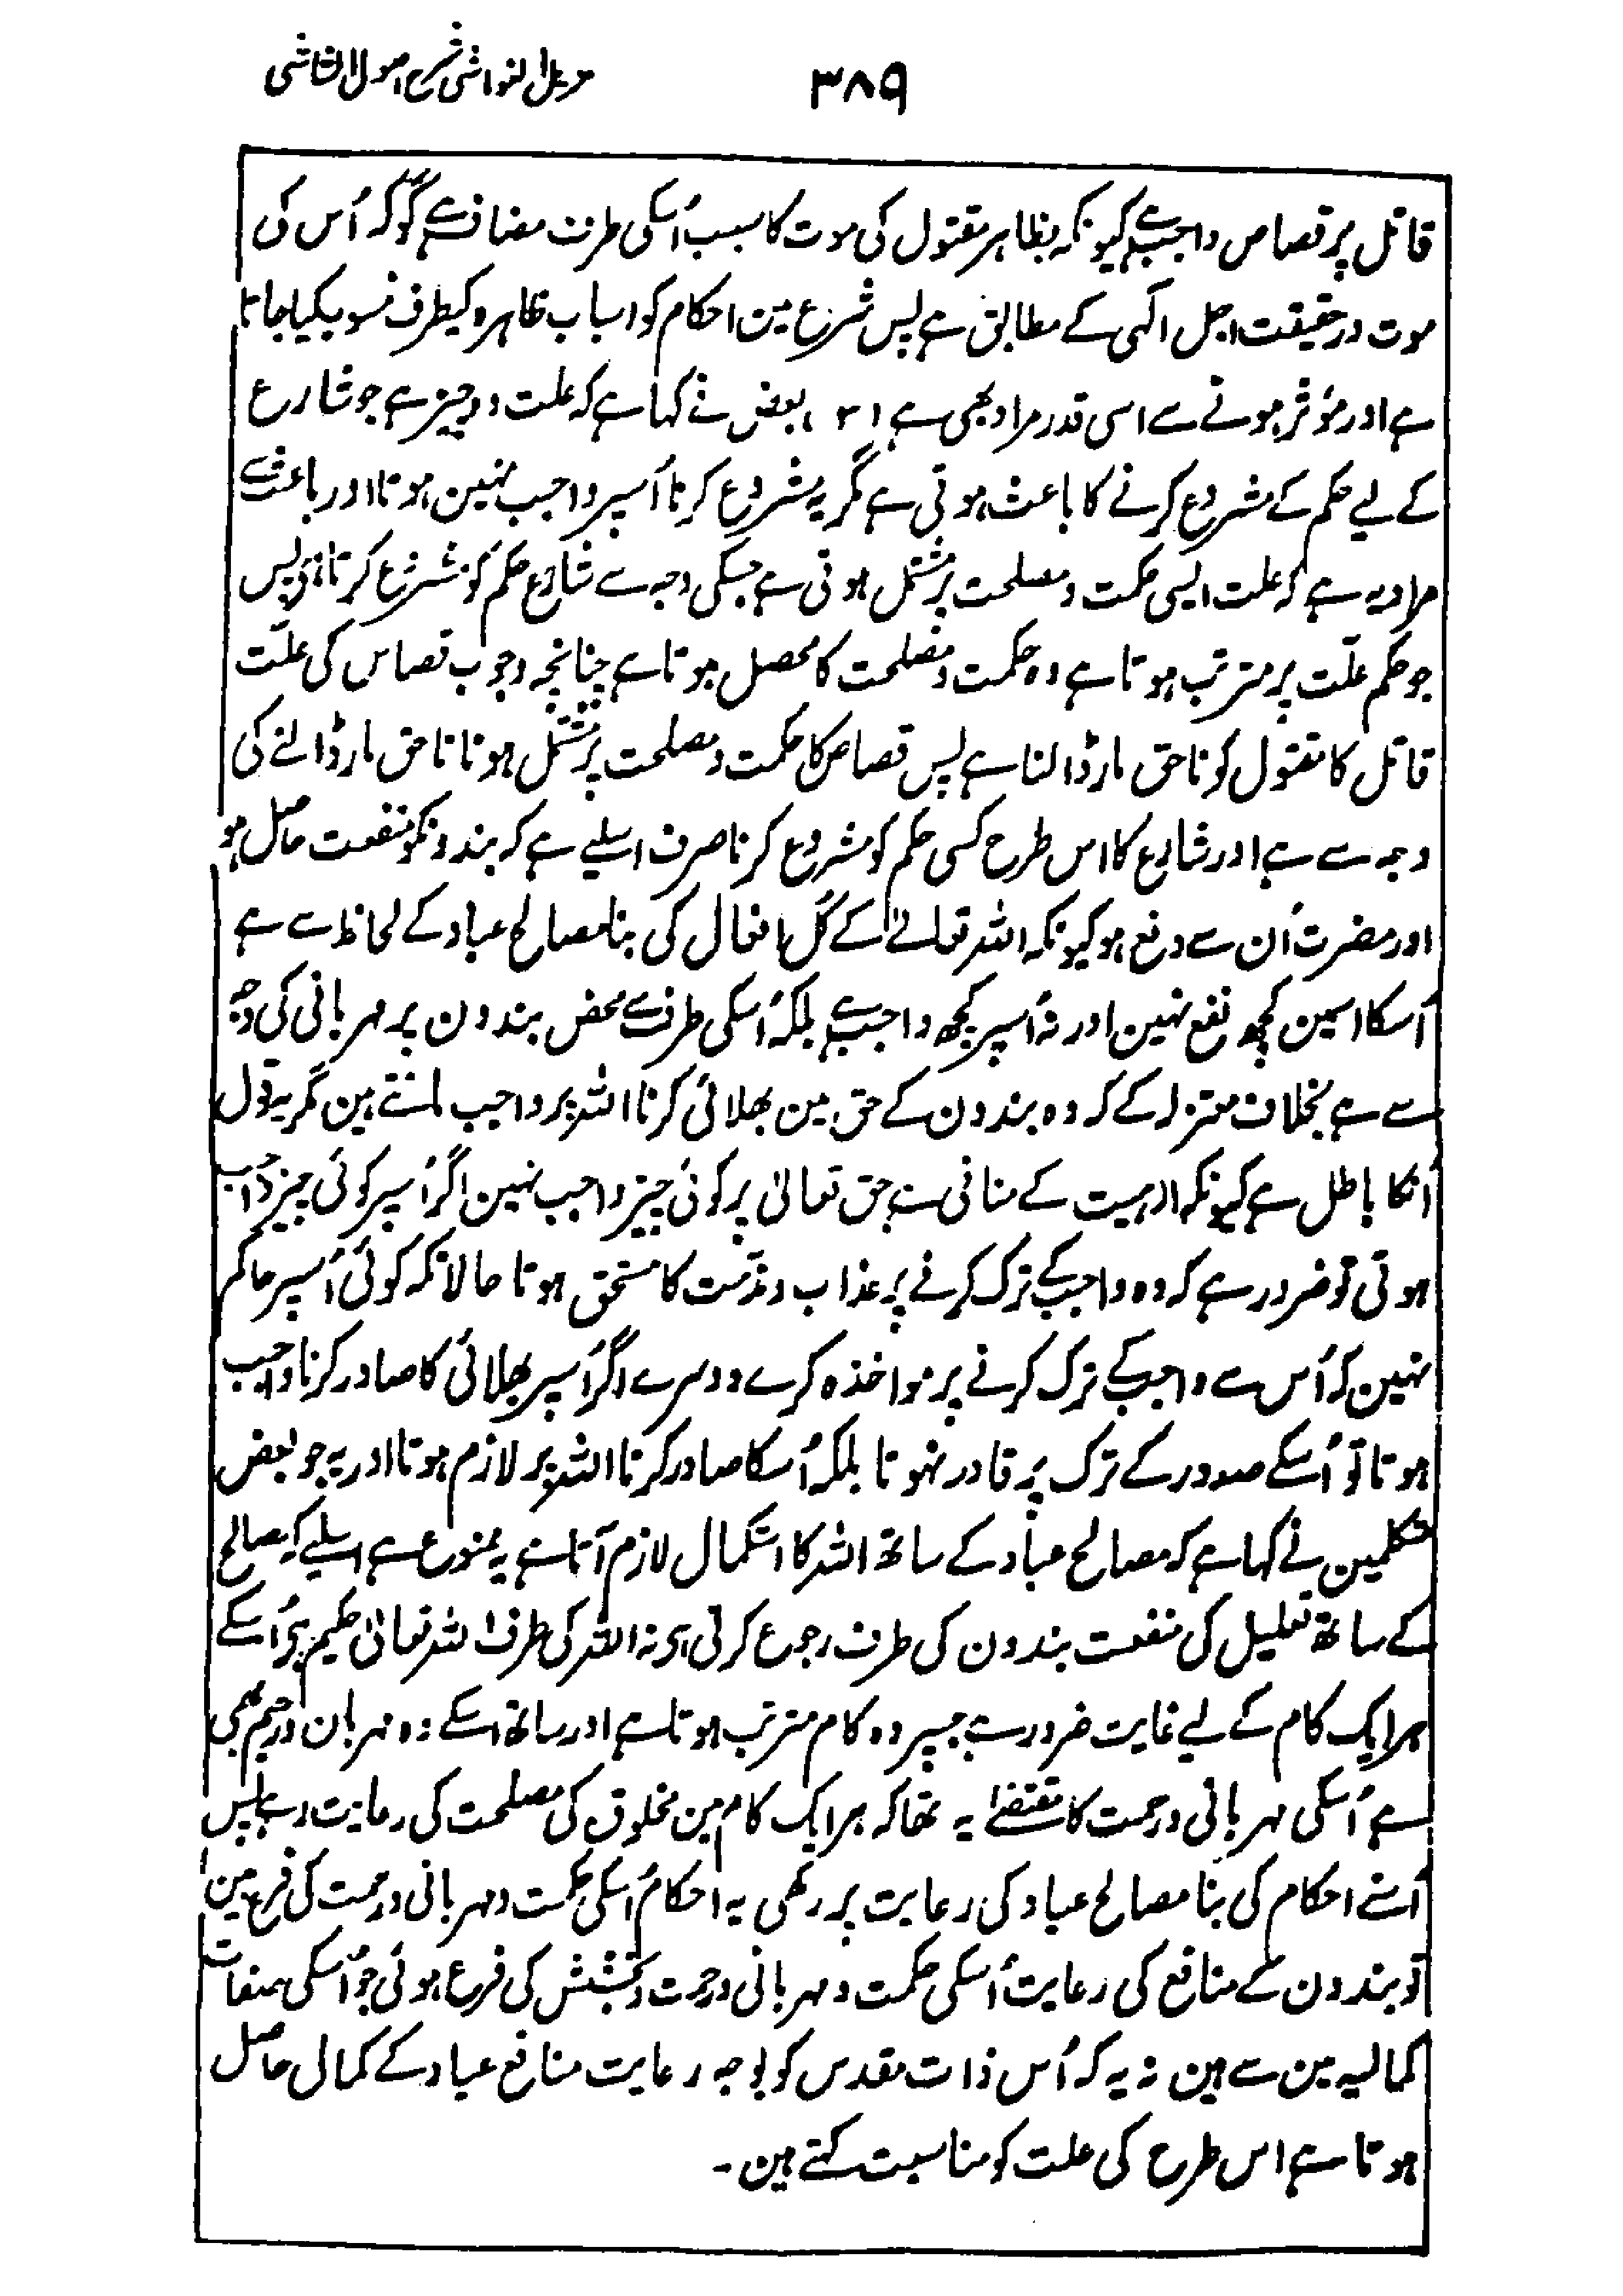 ۳۸۹ مزیل الغواشی شرح اصول الشاشی
قاتل پر قصاص واجب ہے کیونکہ بظاہر مقتول کی موت کا سبب اُسکی طرف مضاف ہے گو کہ اُس کی
موت درحقیقت اجل الٰہی کے مطابق ہے پس شرع مین احکام کو اسباب ظاہرہ کیطرف منسوب کیا جاتا
ہے اور مؤثر ہونے سے اسی قدر مراد بھی ہے (۳) بعض نے کہا ہے کہ علت وہ چیز ہے جو شارع
کے لیے حکم کے مشروع کرنے کا باعث ہوتی ہے مگر یہ مشروع کرنا اُسپر واجب نہین ہوتا اور باعث سے
مراد یہ ہے کہ علت ایسی حکمت و مصلحت پر مشتمل ہوتی ہے جسکی وجہ سے شارع حکم کو مشروع کرتا ہی پس
جو حکم علّت پر مترتب ہوتا ہے وہ حکمت و مصلحت کا محصل ہوتا ہے چنانچہ وجوب قصاص کی علّت
قاتل کا مقتول کو ناحق مار ڈالنا ہے پس قصاص کا حکمت و مصلحت پر مشتمل ہونا ناحق مار ڈالنے کی
وجہ سے ہے اور شارع کا اس طرح کسی حکم کو مشروع کرنا صرف اسلیے ہے کہ بندونکو منفعت حاصل ہو
اور مضرت اُن سے دفع ہو کیونکہ اللہ تعالےٰ کے کُل افعال کی بنا مصالح عباد کے لحاظ سے ہے
اُسکا اسمین کچھ نفع نہین اور نہ اُسپر کچھ واجب ہے بلکہ اُسکی طرف سے محض بندون پر مہربانی کی وجہ
سے ہے بخلاف معتزلہ کے کہ وہ بندون کے حق مین بھلائی کرنا اللہ پر واجب مانتے ہین مگر یہ قول
اُنکا باطل ہے کیونکہ الوہیت کے منافی ہے حق تعالیٰ پر کوئی چیز واجب نہین اگر اُسپر کوئی چیز واجب
ہوتی تو ضرور ہے کہ وہ واجب کے ترک کرنے پر عذاب و مذمّت کا مستحق ہوتا حالانکہ کوئی اُسپر حاکم
نہین کہ اُس سے واجب کے ترک کرنے پر مواخذہ کرے دوسرے اگر اُسپر بھلائی کا صادر کرنا واجب
ہوتا تو اُسکے صدور کے ترک پر قادر نہوتا بلکہ اُسکا صادر کرنا اللہ پر لازم ہوتا اور یہ جو بعض
متکلمین نے کہا ہے کہ مصالح عباد کے ساتھ اللہ کا استکمال لازم آتا ہے یہ ممنوع ہے اسلیے کہ مصالح
کے ساتھ تعلیل کی منفعت بندون کی طرف رجوع کرتی ہی نہ اللہ کی طرف اللہ تعالیٰ حکیم ہی اُسکے
ہر ایک کام کے لیے غایت ضرور ہے جسپر وہ کام مترتب ہوتا ہے اور ساتھ اسکے وہ مہربان و رحیم بھی
ہے اُسکی مہربانی و رحمت کا مقتضےٰ یہ تھا کہ ہر ایک کام مین مخلوق کی مصلحت کی رعایت رہے پس
اُسنے احکام کی بنا مصالح عباد کی رعایت پر رکھی یہ احکام اُسکی حکمت و مہربانی و رحمت کی فرع ہین
تو بندون کے منافع کی رعایت اُسکی حکمت و مہربانی و رحمت و بخشش کی فرع ہوئی جو اُسکی صفات
کمالیہ مین سے ہین نہ یہ کہ اُس ذات مقدس کو بوجہ رعایت منافع عباد کے کمال حاصل
ہوتا ہے اس طرح کی علت کو مناسبت کہتے ہین ۔